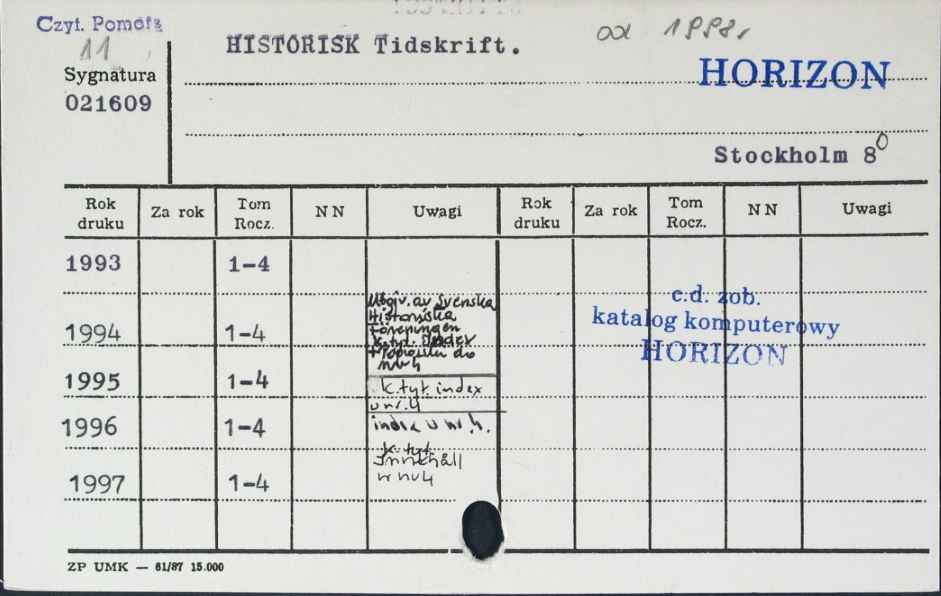 Czyt. Pomorz
11
HISTORISK Tidskrift.
od 1998r
Sygnatura
021609
HORIZON
Stockholm 8⁰
Rok druku Za rok Tom Rocz. NN Uwagi Rok druku Za rok Tom Rocz. NN Uwagi
1993 1-4
Utgiv. av Svenska
Historiska
Föreningen
1994 1-4
k.tyt. Index
do
nr 4
1995 1-4
k.tyt. index
w nr. 4
1996 1-4
index w nr. 4.
k.tyt.
Innehåll
w nr 4
1997 1-4
c.d. zob.
katalog komputerowy
HORIZON
ZP UMK — 61/87 15.000